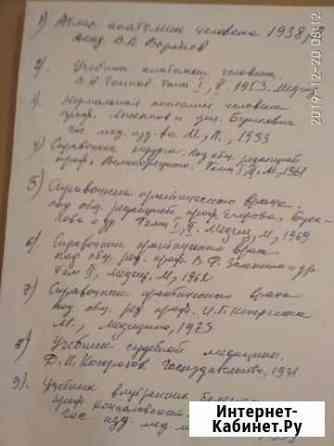 1) Атлас анатомии человека 1938,
акад. В.П. Воробьев
2) Учебник анатомии человека
Том I, II. 1953. Медгиз
3) Нормальная анатомия человека
проф.
Гос. мед. изд-во. М., Л., 1933
4) Справочник хирурга. Под общ. редакцией
проф. Великорецкого. Том I, II, М, 1961
5) Справочник практического врача.
под общ. редакцией, проф. Егорова,
и др. Том I, II. Медгиз, М, 1969
6) Справочник практического врача
Под общ. ред. проф. В. Ф. Зеленина и др.
Том II, Медгиз, М, 1962
7) Справочник практического врача
под общ. ред проф. И.Г. Кочергина
М., Медицина, 1973
8) Учебник судебной медицины.
Д. П. Косоротов Госиздательство, 1931
9) Учебник внутренних болезней
проф. Кончаловский
Гос изд. мед.
2019-12-20 08:12
Интернет-
Купит.НЕТ